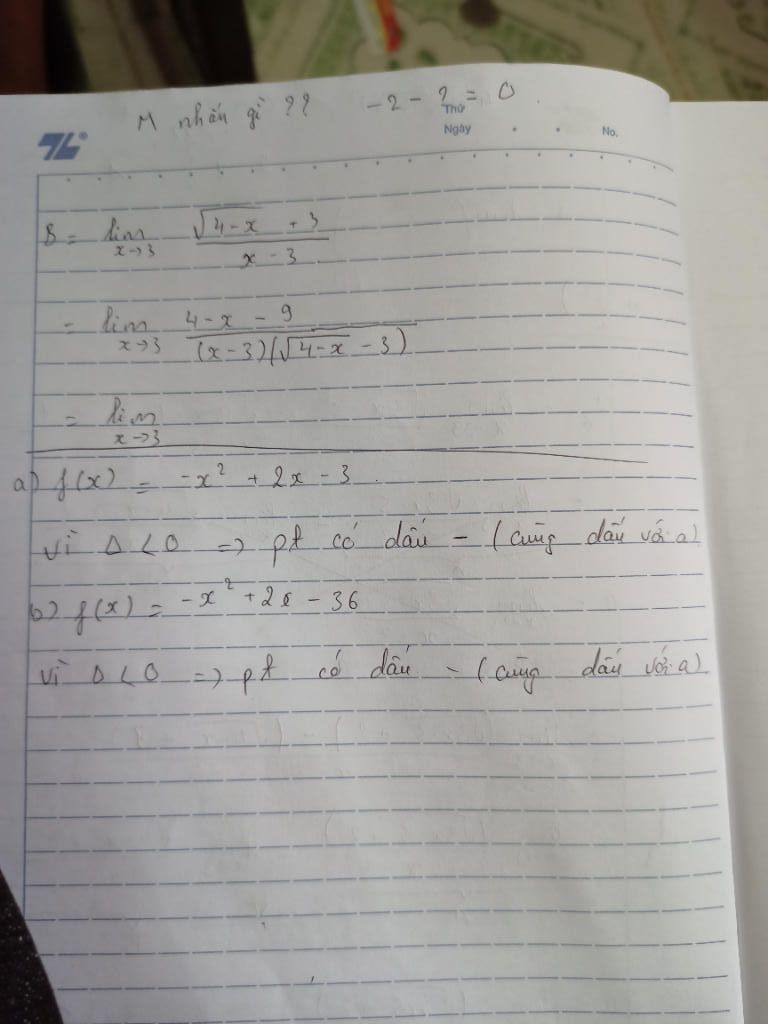 M nhắn gì ?? -2 - ? = 0
Thứ
Ngày No.
B = lim x→3 (√(4-x) + 3)/(x - 3)
= lim x→3 (4-x - 9)/((x-3)(√(4-x) - 3))
= lim x→3
a) f(x) = -x² + 2x - 3.
Vì Δ < 0 => pt có dấu - (cùng dấu với a)
b) f(x) = -x² + 2x - 36
Vì Δ < 0 => pt có dấu - (cùng dấu với a)